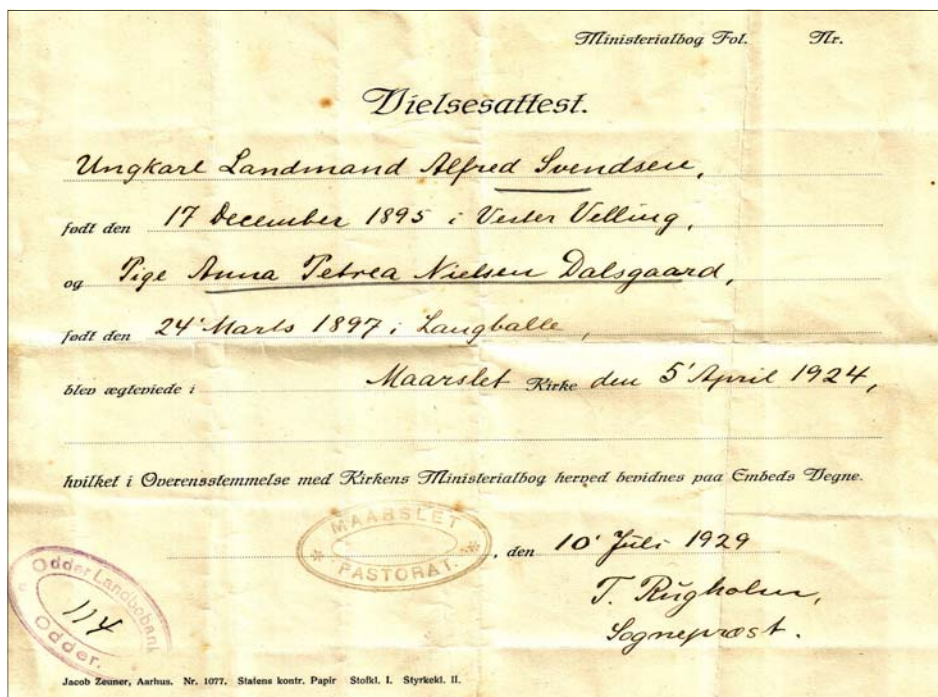 Ministerialbog Fol. Nr.
Vielsesattest.
Ungkarl Landmand Alfred Svendsen,
født den 17 December 1895 i Vester Velling,
og Pige Anna Petrea Nielsen Dalsgaard,
født den 24' Marts 1897 i Langballe,
blev ægteviede i Maarslet Kirke den 5' April 1924,
hvilket i Overensstemmelse med Kirkens Ministerialbog herved bevidnes paa Embeds Vegne.
MAARSLET PASTORAT.
, den 10' Juli 1929
T. Rugholm,
Sognepræst.
Odder Landbobank
114
Odder.
Jacob Zeuner, Aarhus. Nr. 1077. Statens kontr. Papir Stofkl. I. Styrkekl. II.